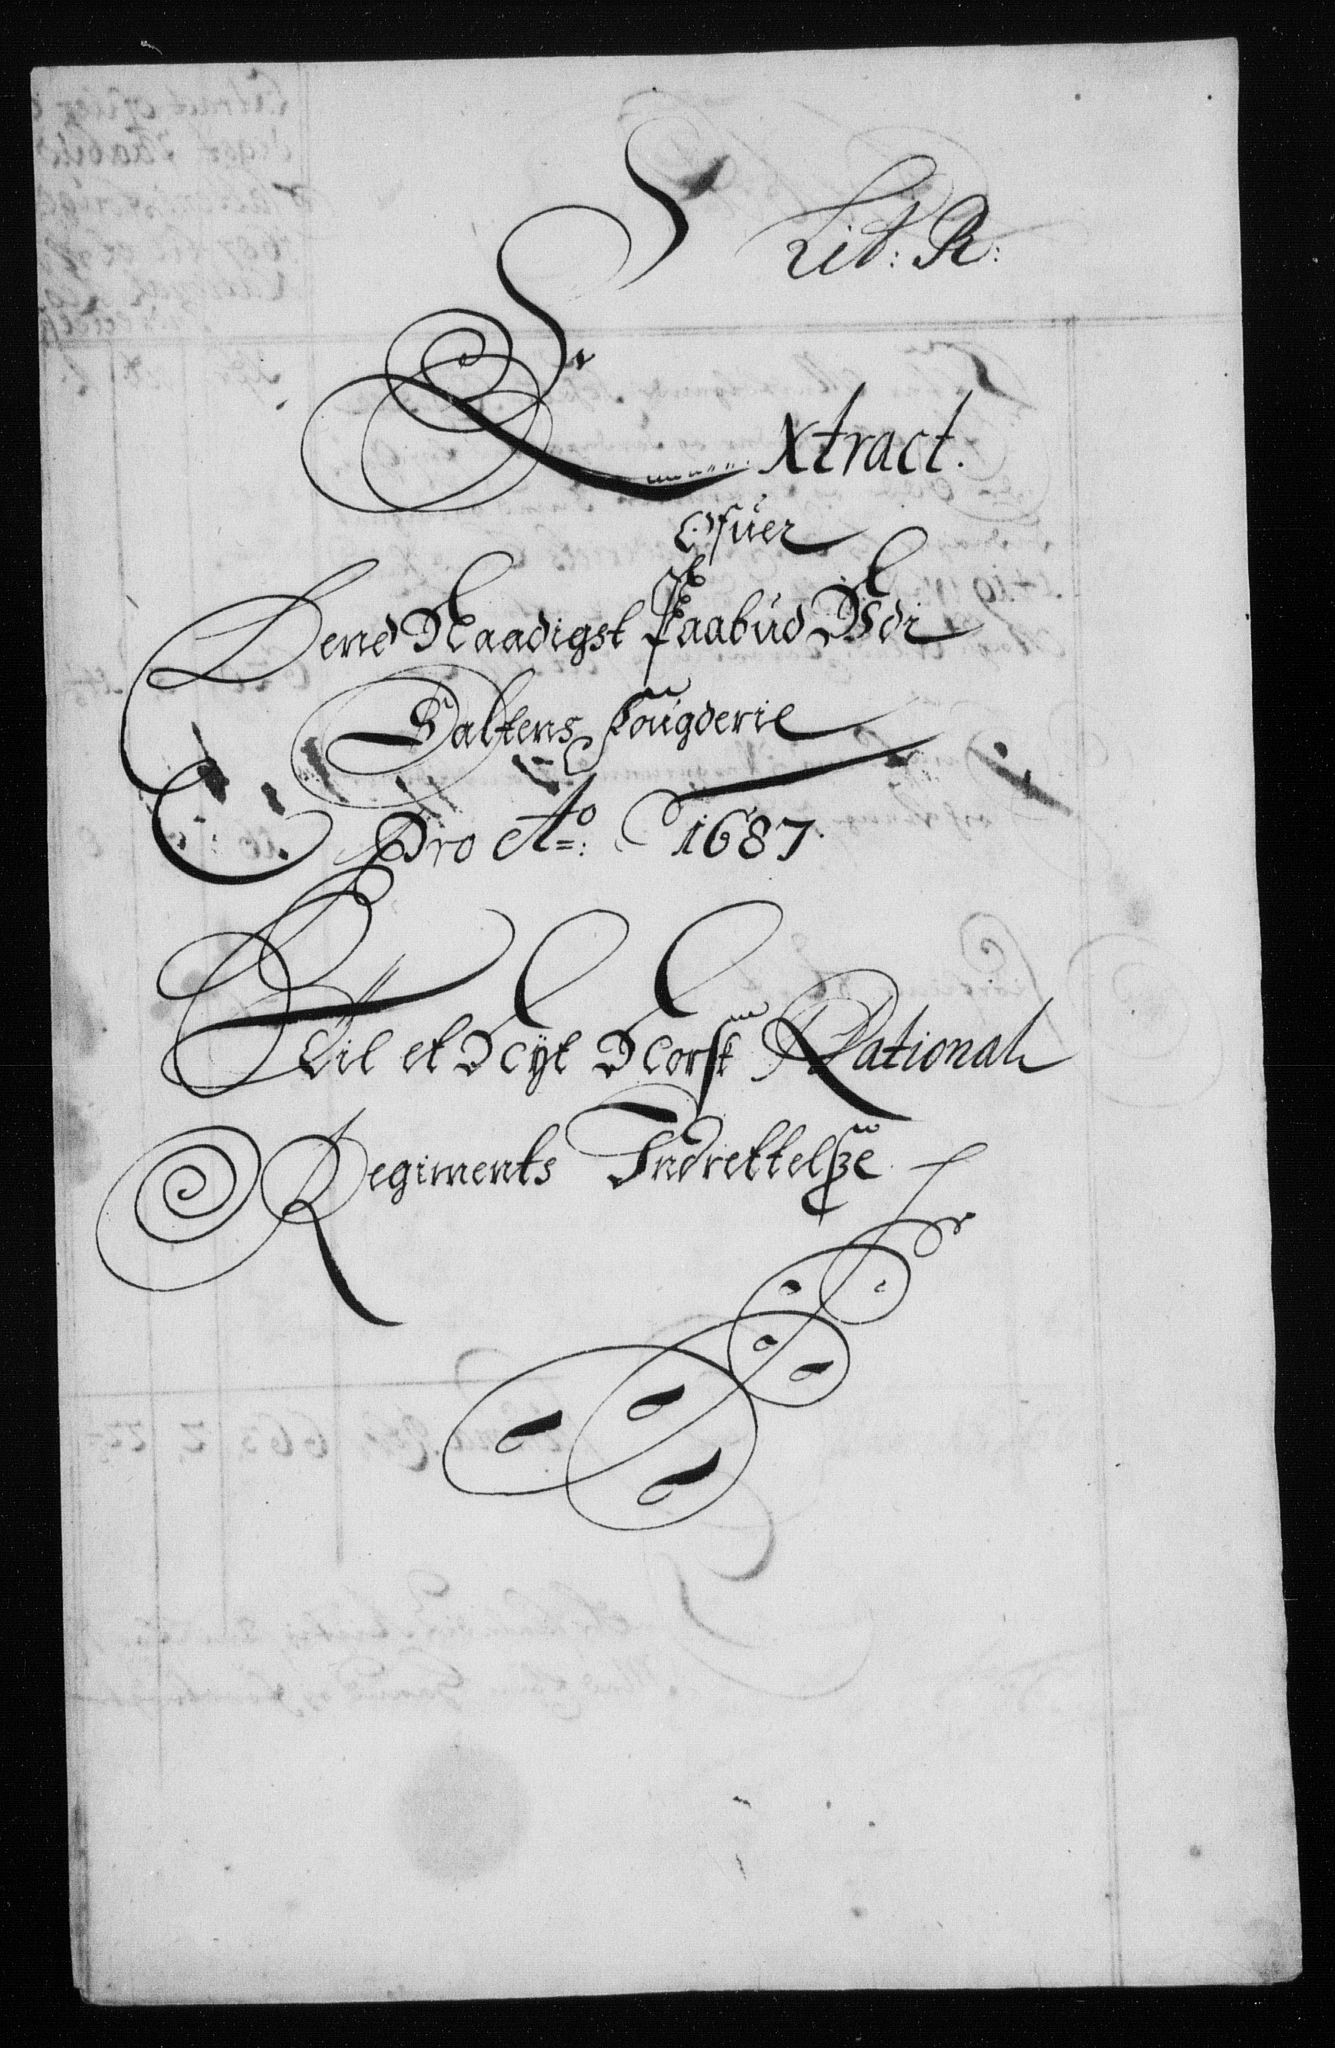 Lit: R:
Extract.
Ofuer
Dend Naadigst Paabud
Saltens Fougderie
Pro Ao: 1687.
Til et Nyt Norsk National
Regiments Indrettelsze